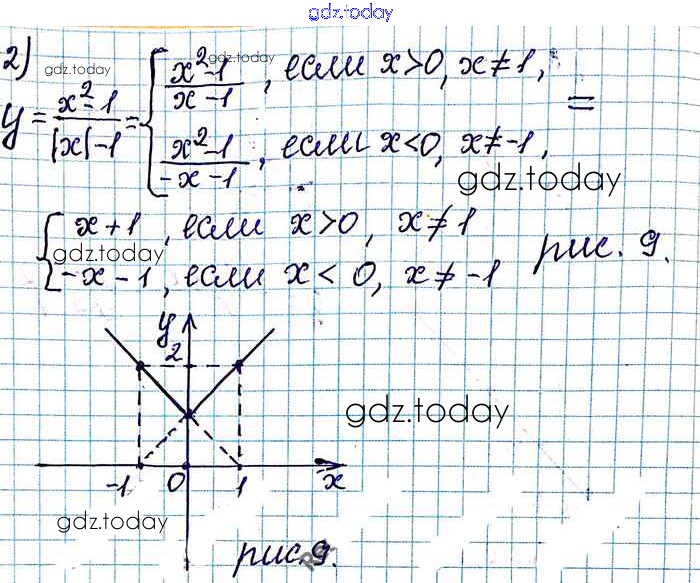 gdz.today
2)
gdz.today
gdz.today
y = x²-1 / |x|-1 = { x²-1 / x-1 , если x>0, x≠1,
x²-1 / -x-1 , если x<0, x≠-1, =
gdz.today
{ x+1 , если x>0, x≠1
gdz.today
-x-1, если x<0, x≠-1 рис. 9.
y
2
gdz.today
-1 0 1 x
gdz.today
рис. 9.